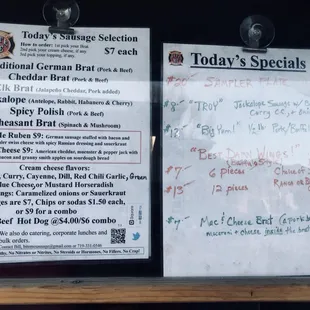 Today's Sausage Selection
How to order: 1st pick your Brat.
2nd pick your cream cheese, if any
3rd pick your topping, if any.
$7 each
ditional German Brat (Pork & Beef)
Cheddar Brat (Pork & Beef)
Elk Brat (Jalapeño Cheddar, Pork added)
kalope (Antelope, Rabbit, Habanero & Cherry)
Spicy Polish (Pork & Beef)
heasant Brat (Spinach & Mushroom)
le Ruben $9: German sausage stuffed with bacon and
der swiss cheese with spicy Russian dressing and sauerkraut
Cheese $9: American cheddar, munster & pepper jack with
acon and granny smith apples on sourdough bread
Cream cheese flavors:
, Curry, Cayenne, Dill, Red Chili Garlic, Green
Blue Cheese, or Mustard Horseradish
ings: Caramelized onions or Sauerkraut
ages are $7, Chips or sodas $1.50 each,
or $9 for a combo
Beef Hot Dog @$4.00/$6 combo
We also do catering, corporate lunches and
bulk orders.
No Nitrates or Nitrites, No Steroids or Hormones, No Fillers. No Crap!
Today's Specials
$20 SAMPLER PLATE
$8 "TROY" Jackalope Sausage w/
Curry CC,
$12 "Big Paml" 1/2 lb
"Best Damn Wings"
$7 6 pieces Choice of
$13 12 pieces Ranch or
$7 Mac & Cheese Brat (a pork b
macaroni & cheese inside the brat